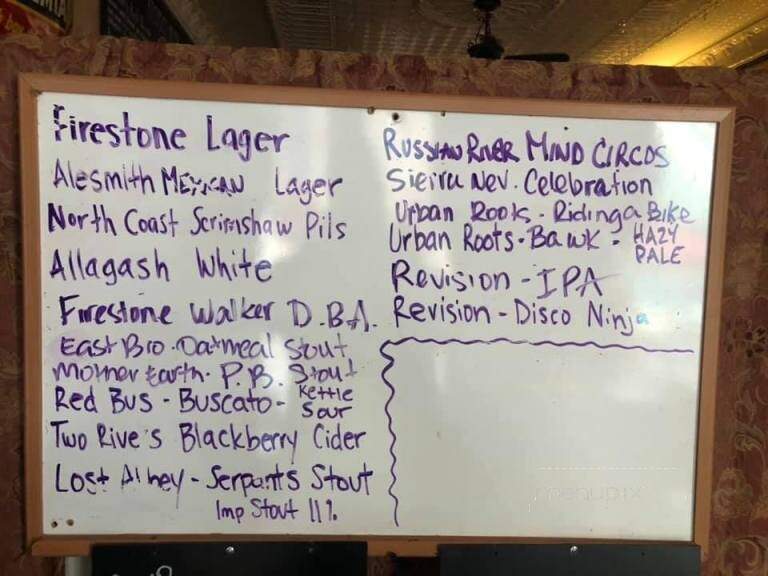 Firestone Lager
Alesmith Mexican Lager
North Coast Scrimshaw Pils
Allagash White
Firestone Walker D.B.A.
East Bro. Oatmeal Stout
Mother Earth - P.B. Stout
Red Bus - Buscato - Kettle
Sour
Two Rive's Blackberry Cider
Lost Abbey - Serpants Stout
Imp Stout 11%
Russian River Mind Circus
Sierra Nev. Celebration
Urban Rooks - Riding a Bike
Urban Roots - Bawk - HAZY
PALE
Revision - IPA
Revision - Disco Ninja
menupix